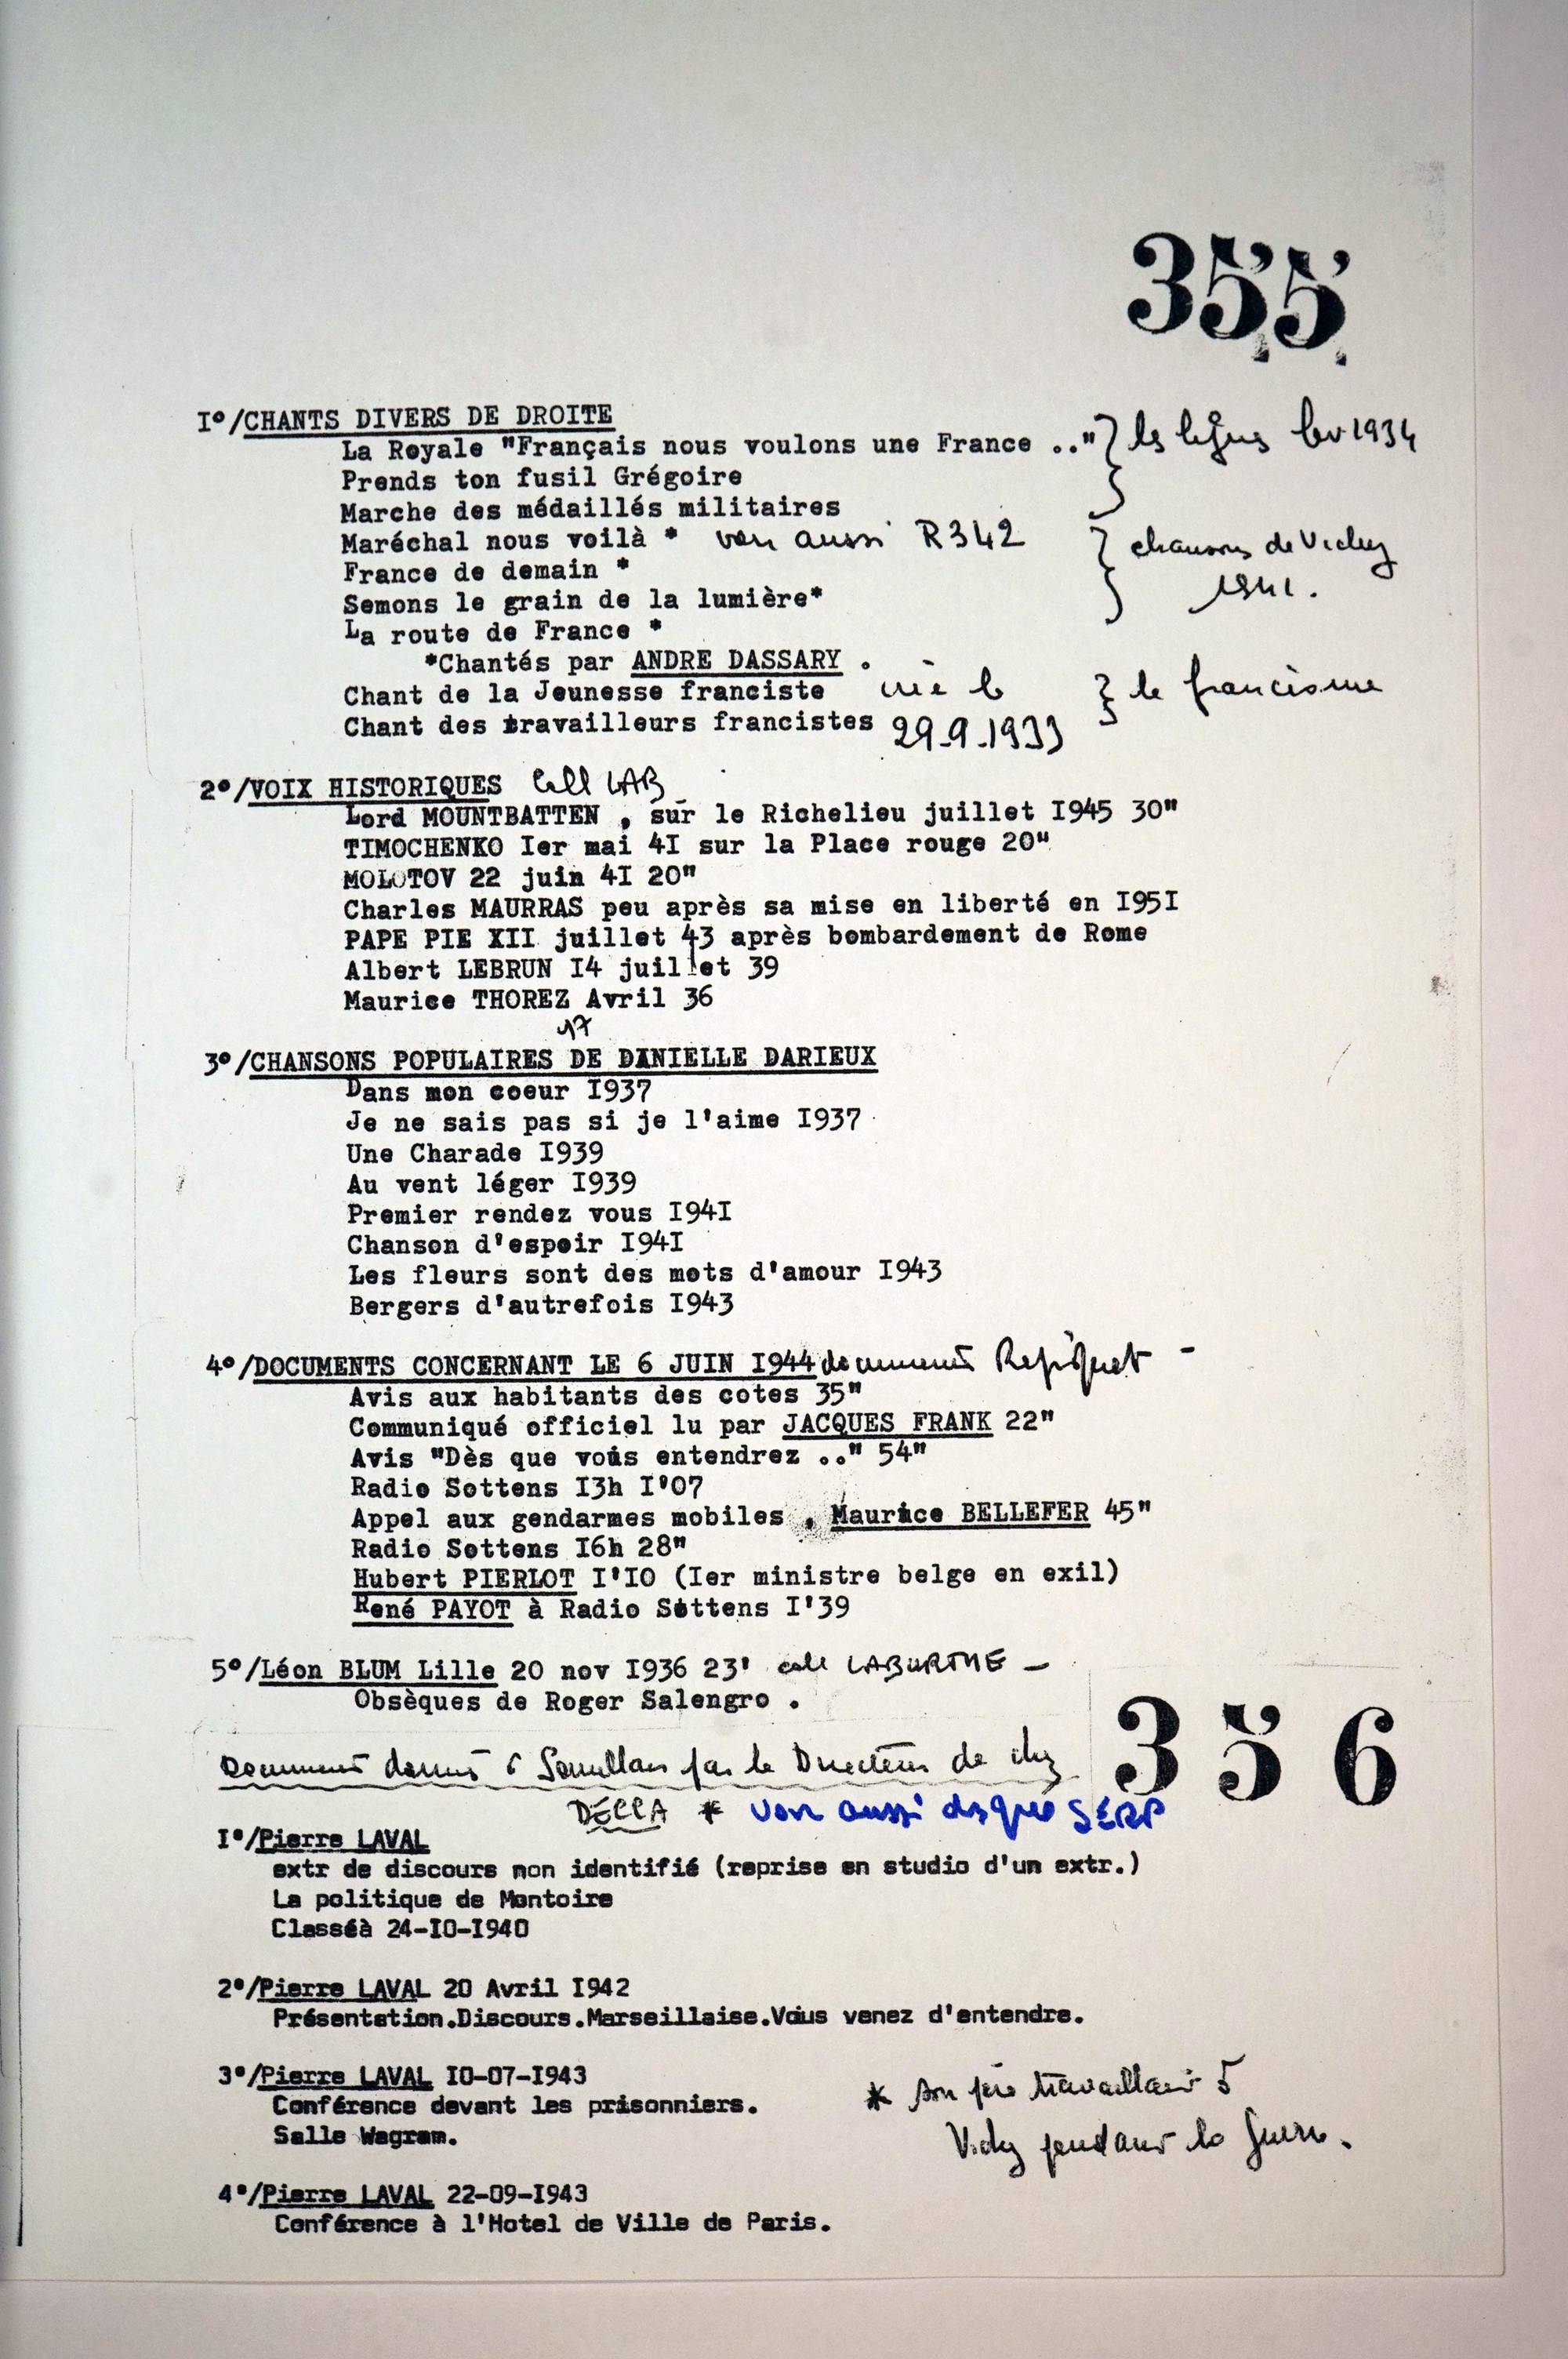 355
I°/CHANTS DIVERS DE DROITE
La Royale "Français nous voulons une France .." les ligues fev 1934
Prends ton fusil Grégoire
Marche des médaillés militaires
Maréchal nous voilà * voir aussi R342 chansons de Vichy
France de demain * 1941.
Semons le grain de la lumière*
La route de France *
*Chantés par ANDRE DASSARY .
Chant de la Jeunesse franciste créé le le francisme
Chant des travailleurs francistes 29.9.1933
2°/VOIX HISTORIQUES Coll LAB
Lord MOUNTBATTEN , sur le Richelieu juillet I945 30"
TIMOCHENKO Ier mai 4I sur la Place rouge 20"
MOLOTOV 22 juin 4I 20"
Charles MAURRAS peu après sa mise en liberté en I95I
PAPE PIE XII juillet 43 après bombardement de Rome
Albert LEBRUN I4 juillet 39
Maurice THOREZ Avril 36
17
3°/CHANSONS POPULAIRES DE DANIELLE DARIEUX
Dans mon coeur I937
Je ne sais pas si je l'aime I937
Une Charade I939
Au vent léger I939
Premier rendez vous I94I
Chanson d'espoir I94I
Les fleurs sont des mots d'amour I943
Bergers d'autrefois I943
4°/DOCUMENTS CONCERNANT LE 6 JUIN I944 documents Repiquet -
Avis aux habitants des cotes 35"
Communiqué officiel lu par JACQUES FRANK 22"
Avis "Dès que vous entendrez .." 54"
Radio Sottens I3h I'07
Appel aux gendarmes mobiles , Maurice BELLEFER 45"
Radio Sottens I6h 28"
Hubert PIERLOT I'IO (Ier ministre belge en exil)
René PAYOT à Radio Sottens I'39
5°/Léon BLUM Lille 20 nov I936 23' coll LABURTHE -
Obsèques de Roger Salengro .
356
Documents donnés à par le Directeur de chez
DECCA * voir aussi disques SERP
I°/Pierre LAVAL
extr de discours non identifié (reprise en studio d'un extr.)
La politique de Montoire
Classéà 24-IO-I940
2°/Pierre LAVAL 20 Avril I942
Présentation.Discours.Marseillaise.Vous venez d'entendre.
3°/Pierre LAVAL IO-07-I943
Conférence devant les prisonniers.
Salle Wagram.
* son père travaillait à
Vichy pendant la guerre.
4°/Pierre LAVAL 22-09-I943
Conférence à l'Hotel de Ville de Paris.